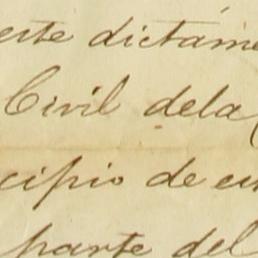 este dictáme
Civil dela
cipio de es
parte del